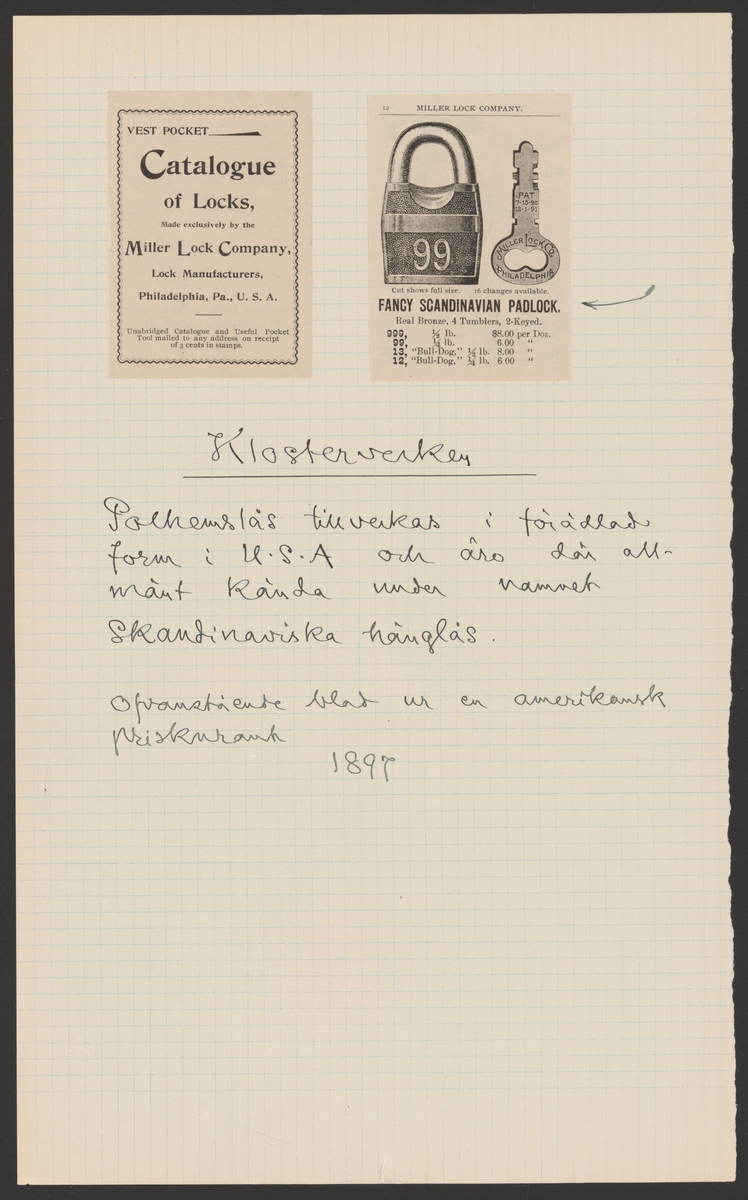 VEST POCKET
Catalogue
of Locks,
Made exclusively by the
Miller Lock Company,
Lock Manufacturers,
Philadelphia, Pa., U. S. A.
Unabridged Catalogue and Useful Pocket
Tool mailed to any address on receipt
of 3 cents in stamps.
12 MILLER LOCK COMPANY.
99
PAT
MILLER LOCK CO.
PHILADELPHIA
Cut shows full size. 16 changes available.
FANCY SCANDINAVIAN PADLOCK.
Real Bronze, 4 Tumblers, 2-Keyed.
999, ½ lb. $8.00 per Doz.
99, ¼ lb. 6.00 "
13, "Bull-Dog," ½ lb. 8.00 "
12, "Bull-Dog," ¼ lb. 6.00 "
Klosterverken
Polhemslås tillverkas i förädlad
form i U.S.A och äro där all-
mänt kända under namnet
Skandinaviska hänglås.
Ofvanstående blad ur en amerikansk
priskurant
1897